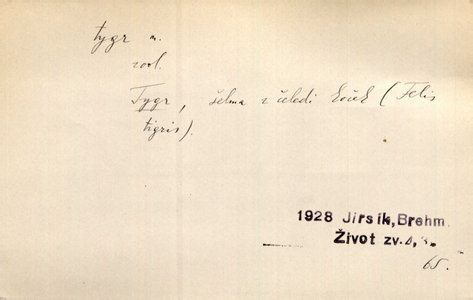 tygr m.
zool.
Tygr, šelma z čeledi koček (Felis
tigris).
1928 Jirsík, Brehm
Život zv.
65.